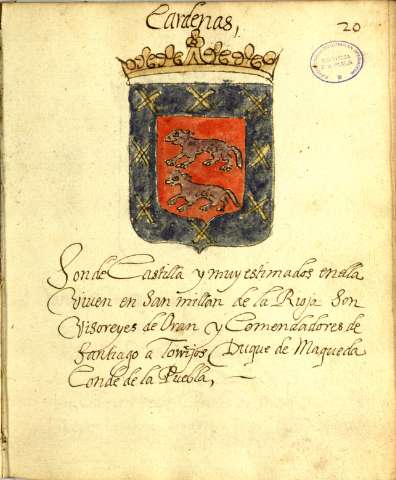 Cardenas,
20
Son de Castilla y muy estimados en ella
Viven en San millan de la Rioja Son
Visoreyes de Oran y Comendadores de
Santiago a Torrijos Duque de Maqueda
Conde de la Puebla,